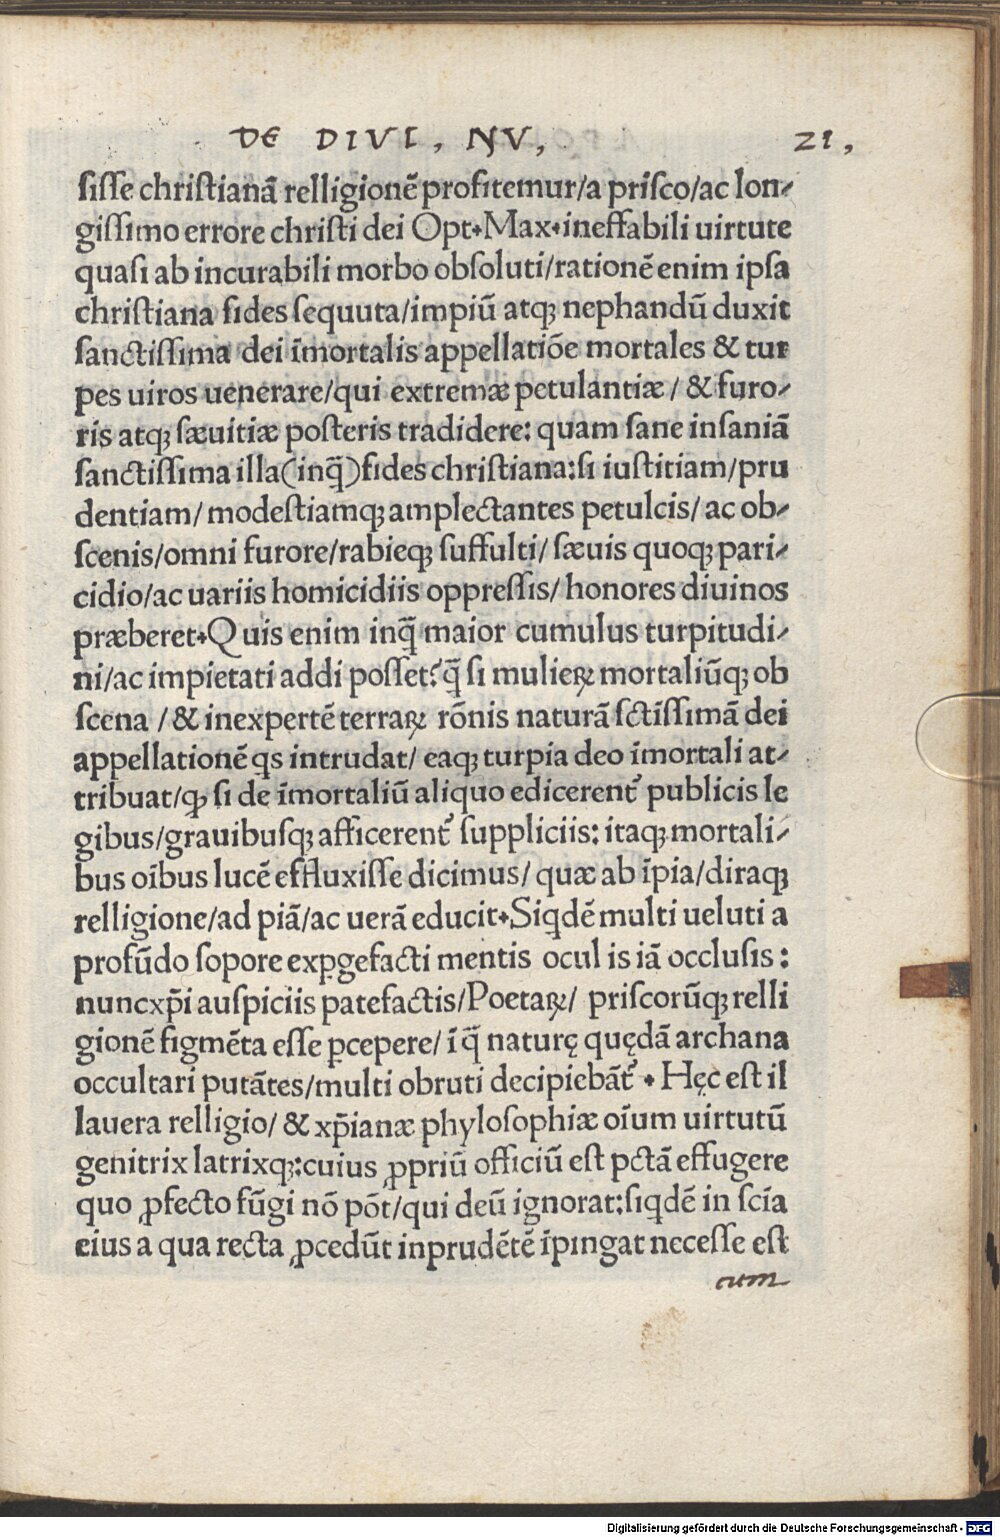 DE DIVI, NV, 21,
siſſe chriſtianā relligionē profitemur/a priſco/ac lon-
giſſimo errore chriſti dei Opt.Max.ineffabili uirtute
quaſi ab incurabili morbo obſoluti/rationē enim ipſa
chriſtiana fides ſequuta/impiū atqꝫ nephandū duxit
ſanctiſſima dei īmortalis appellatiōe mortales & tur
pes uiros uenerare/qui extremæ petulantiæ/ & furo-
ris atqꝫ ſæuitiæ poſteris tradidere: quam ſane inſaniā
ſanctiſſima illa(inq̄)fides chriſtiana:ſi iuſtitiam/pru
dentiam/ modeſtiamqꝫ amplectantes petulcis/ ac ob-
ſcenis/omni furore/rabieqꝫ ſuffulti/ ſæuis quoqꝫ pari-
cidio/ac uariis homicidiis oppreſſis/ honores diuinos
præberet.Quis enim inq̄ maior cumulus turpitudi-
ni/ac impietati addi poſſet?q̄ ſi mulieꝝ mortaliūqꝫ ob
ſcena /& inexpertē terraꝝ rōnis naturā ſctīſſimā dei
appellationē qs intrudat/ eaqꝫ turpia deo īmortali at-
tribuat/ꝙ ſi de īmortaliū aliquo edicerent᷑ publicis le
gibus/grauibuſqꝫ afficerent᷑ ſuppliciis: itaqꝫ mortali-
bus oībus lucē effluxiſſe dicimus/ quæ ab īpia/diraqꝫ
relligione/ad piā/ac uerā educit.Siqdē multi ueluti a
profūdo ſopore exꝑgefacti mentis ocul is iā occluſis:
nuncxp̄i auſpiciis patefactis/Poetaꝝ/ priſcorūqꝫ relli
gionē figmēta eſſe ꝑcepere/ ī q̄ naturę quędā archana
occultari putātes/multi obruti decipiebāt᷑ . Hęc eſt il
lauera relligio/ & xp̄ianæ phyloſophiæ oīum uirtutū
genitrix latrixqꝫ:cuius ꝓpriū officiū eſt pctā effugere
quo ꝓfecto fūgi nō pōt/qui deū ignorat:ſiqdē in ſcīa
eius a qua recta ꝓcedūt inprudētē īpingat neceſſe eſt
cum